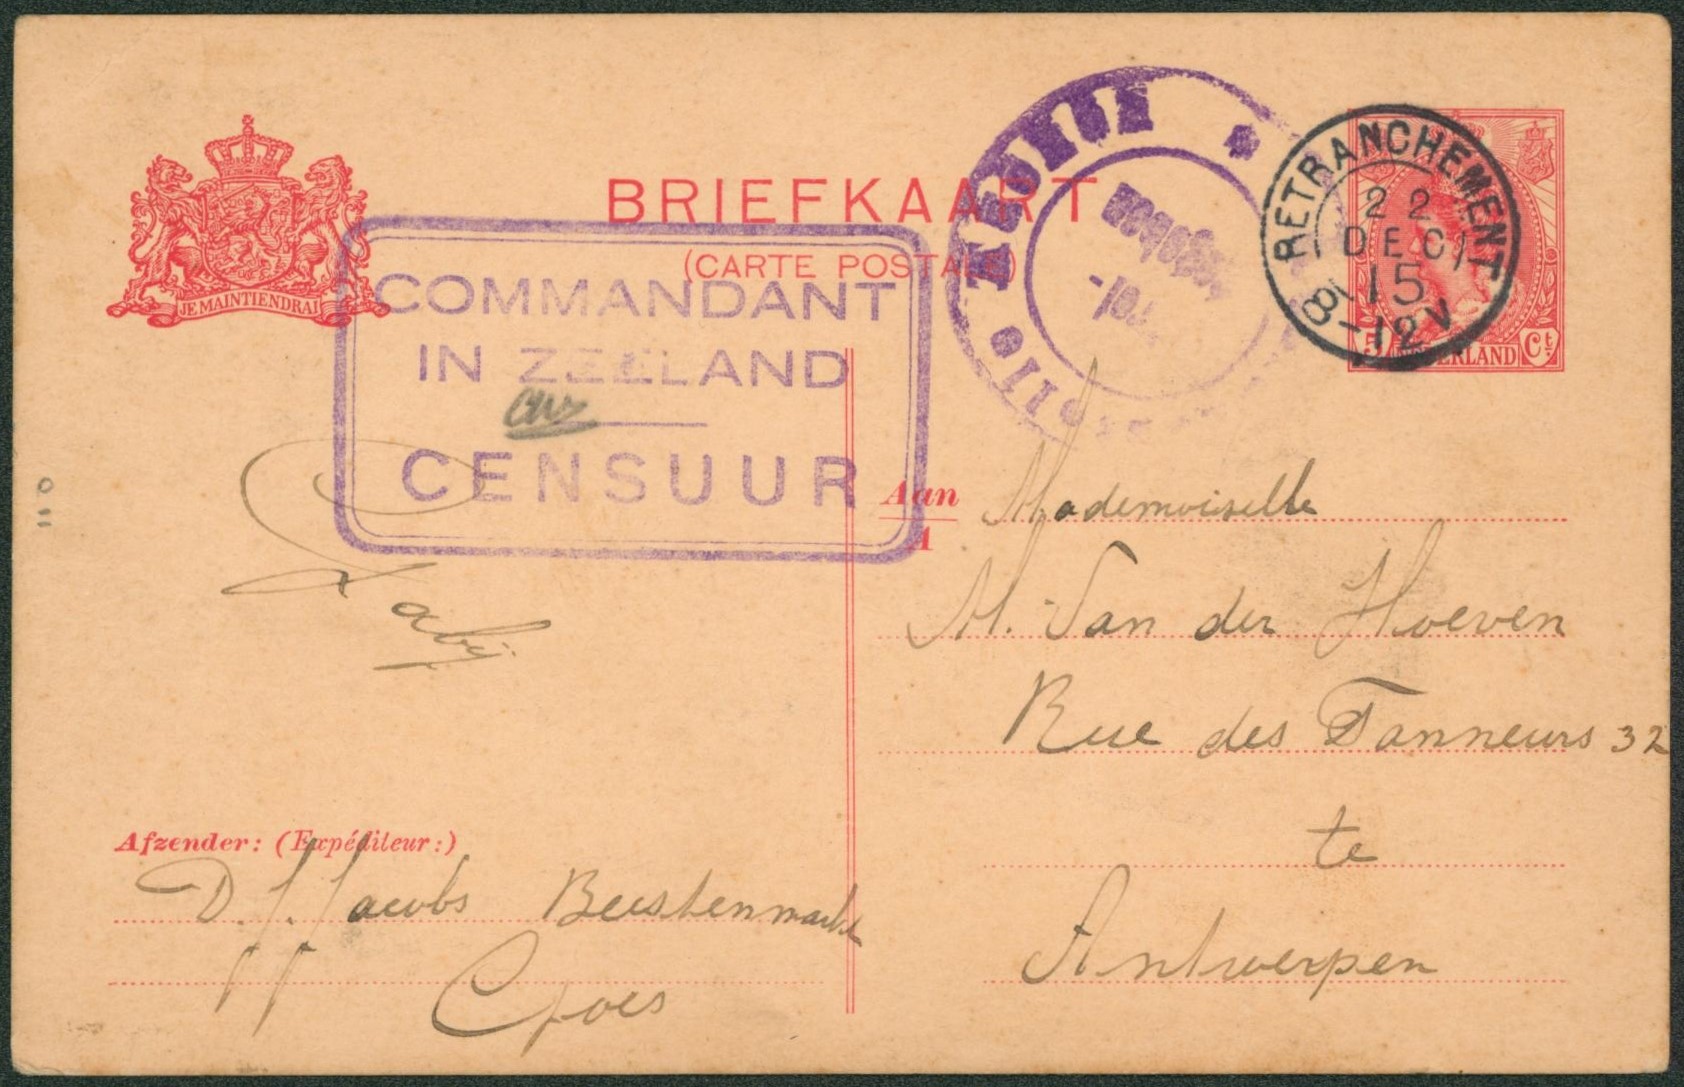 BRIEFKAART
(CARTE POSTALE)
JE MAINTIENDRAI
RETRANCHEMENT
22
DEC
15
8-12V
5 NEDERLAND Ct.
COMMANDANT
IN ZEELAND
CENSUUR
Aan
A
Mademoiselle
M. Van der Hoeven
Rue des Tanneurs 32
te
Antwerpen
Afzender: (Expéditeur:)
D. J. Jacobs Beestenmarkt
Goes
110